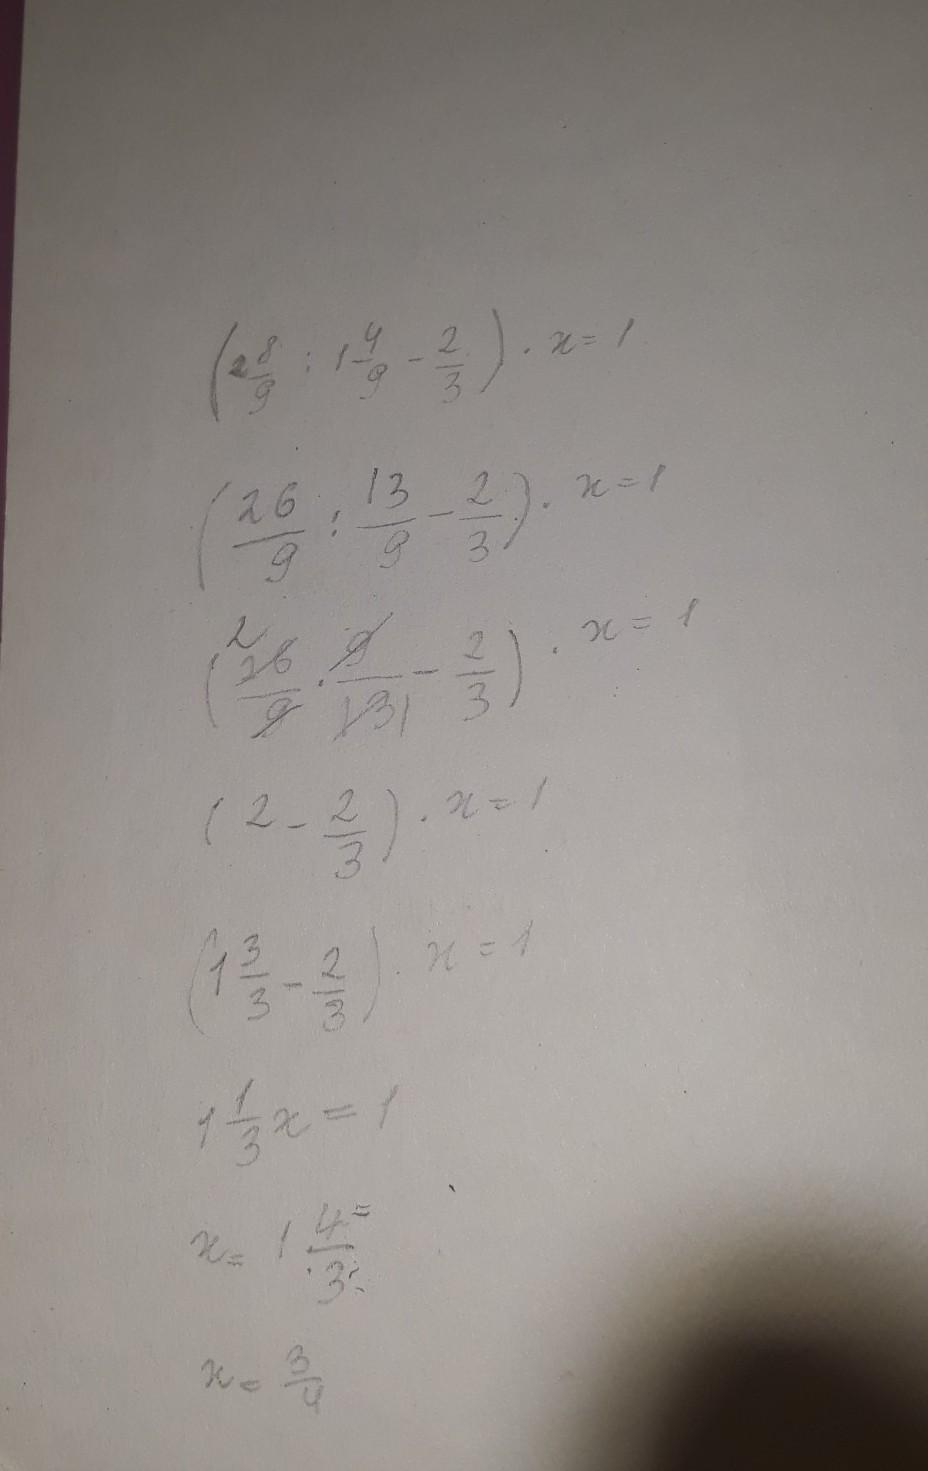 (2 8/9 : 1 4/9 - 2/3) · x = 1
(26/9 : 13/9 - 2/3) · x = 1
(26/9 · 9/13 - 2/3) · x = 1
(2 - 2/3) · x = 1
(1 3/3 - 2/3) · x = 1
1 1/3 x = 1
x = 1 4/3
x = 3/4